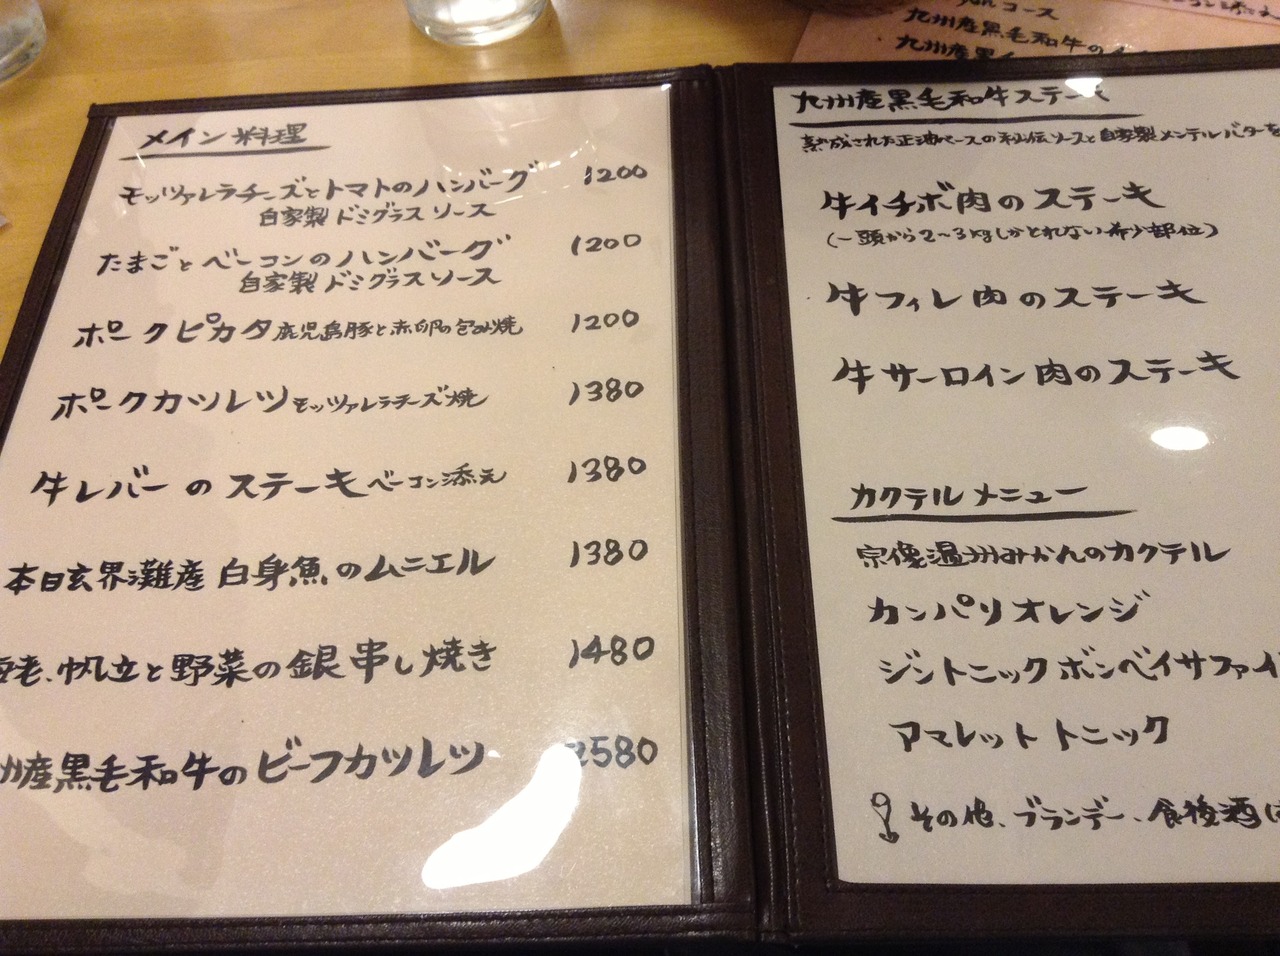 丸コース
九州産黒毛和牛の
九州産黒
メイン料理
モッツァレラチーズとトマトのハンバーグ 1200
自家製 ドミグラスソース
たまごとベーコンのハンバーグ 1200
自家製 ドミグラスソース
ポークピカタ 鹿児島豚と赤卵の包み焼 1200
ポークカツレツ モッツァレラチーズ焼 1380
牛レバーのステーキ ベーコン添え 1380
本日玄界灘産 白身魚のムニエル 1380
海老、帆立と野菜の銀串し焼き 1480
州産黒毛和牛のビーフカツレツ 2580
九州産黒毛和牛ステーキ
熟成された正油ベースの秘伝ソースと自家製メンテルバターを
牛イチボ肉のステーキ
(一頭から2〜3kgしかとれない希少部位)
牛フィレ肉のステーキ
牛サーロイン肉のステーキ
カクテルメニュー
宗像温州みかんのカクテル
カンパリオレンジ
ジントニック ボンベイサファイ
アマレット トニック
その他、ブランデー、食後酒は